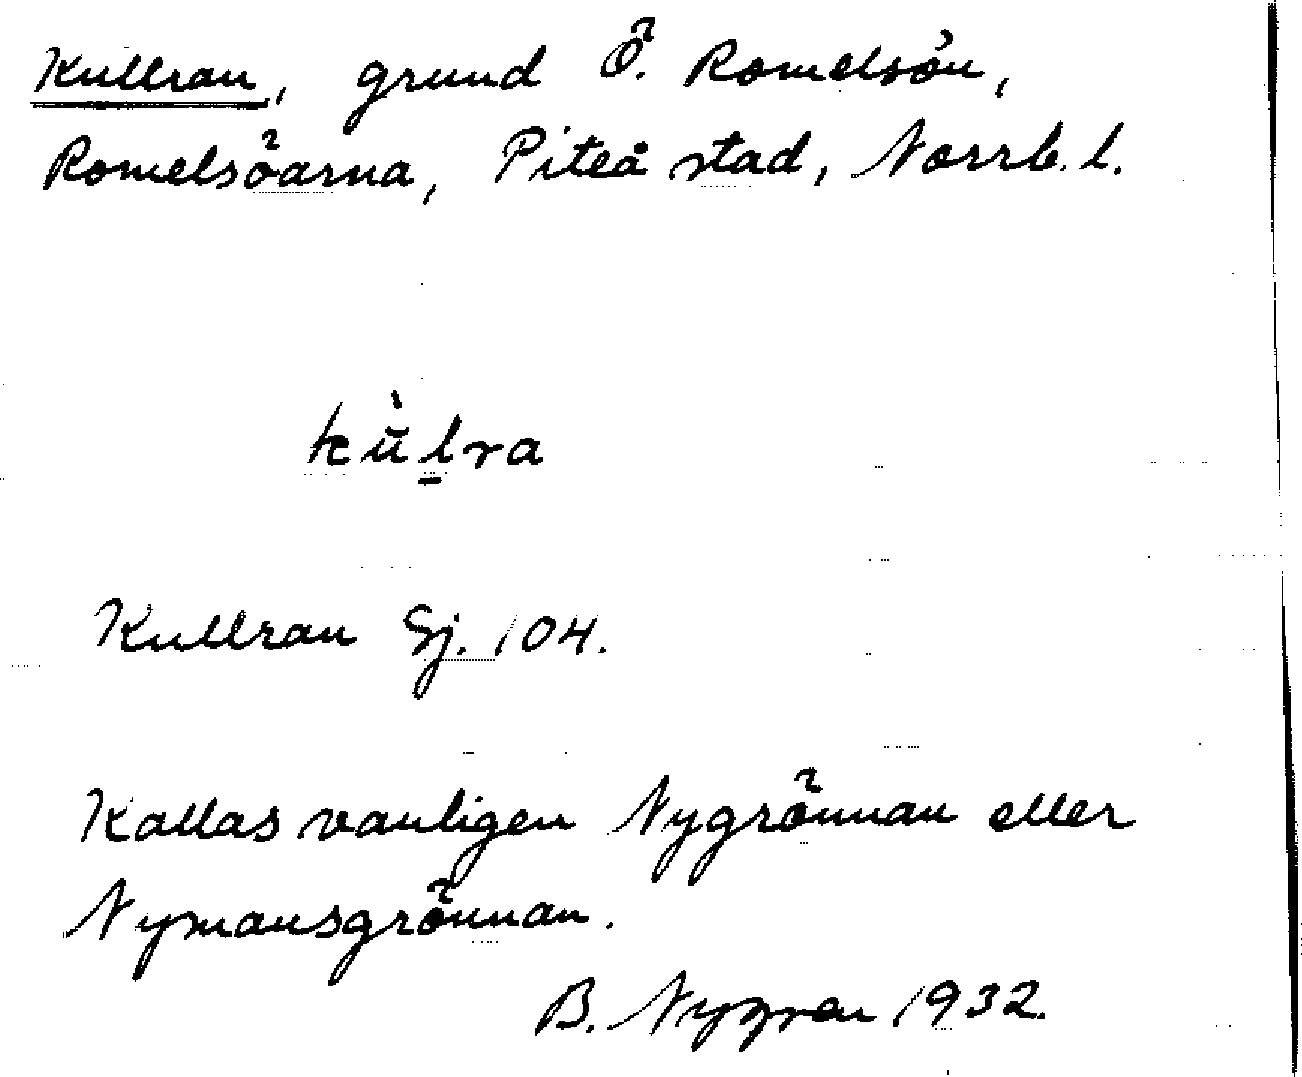 Kullran, grund Ö. Romelsön,
Romelsöarna, Piteå stad, Norrb. l.
kù̄l̲ra
Kullran Sj. 104.
Kallas vanligen Nygrönnan eller
Nymansgrönnan.
B. Nygren 1932.